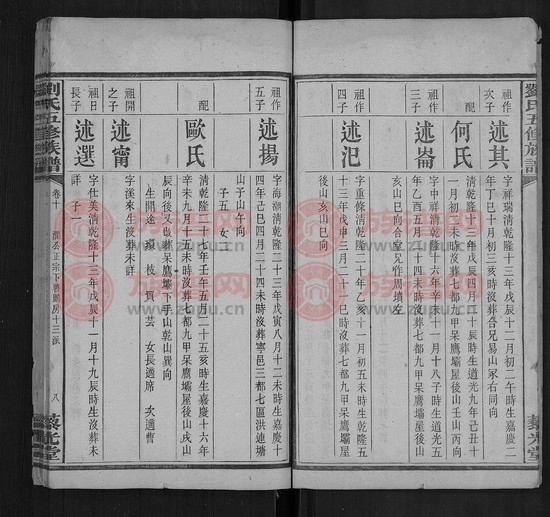 劉氏五修族譜
藜光堂
祖作次子
述其
字祥瑞清乾隆十三年戊辰十二月初二午時生嘉慶二
年丁巳十月初三亥時沒葬合兄易山家右同向
配
何氏
清乾隆十三年戊辰十月初一巳時生道光九年己丑十
一月初二未時沒葬七都九甲呆鷹壩屋後山壬山丙向
祖作三子
述崙
字中祥清乾隆二十年乙亥五月二十辛未十一月十八子時生道光五
年乙酉五月二十未時沒葬七都九甲呆鷹壩屋後山
亥山巳向合室兄作周墳左
祖作四子
述汜
字重修清乾隆二十年乙亥十月初五未時生乾隆五
十三年戊申三月二十一巳時沒葬七都九甲呆鷹壩屋後山
亥山巳向
祖作五子
述揚
字海瀕清乾隆二十三年戊寅八月十二未時生嘉慶十
四年己巳四月二十四未時沒葬寧邑三都七區洪連塘
山子山午向
子五 女二
配
歐氏
清乾隆二十七年壬午五月二十五亥時生嘉慶十六年
辛未九月十五未時沒葬七都九甲呆鷹壩屋後山戌山
辰向後又改葬呆鷹壩下手山乾山巽向
生開途 環 枝 貢 芸 女長適席 次適曹
祖開之子
述甯
字溪來生沒葬未詳
祖日長子
述選
字仕美清乾隆十三年戊辰十一月十九辰時生沒葬未
詳 子一
劉氏五修族譜
卷十
八
藜光堂
族譜網
www.zupu.cn